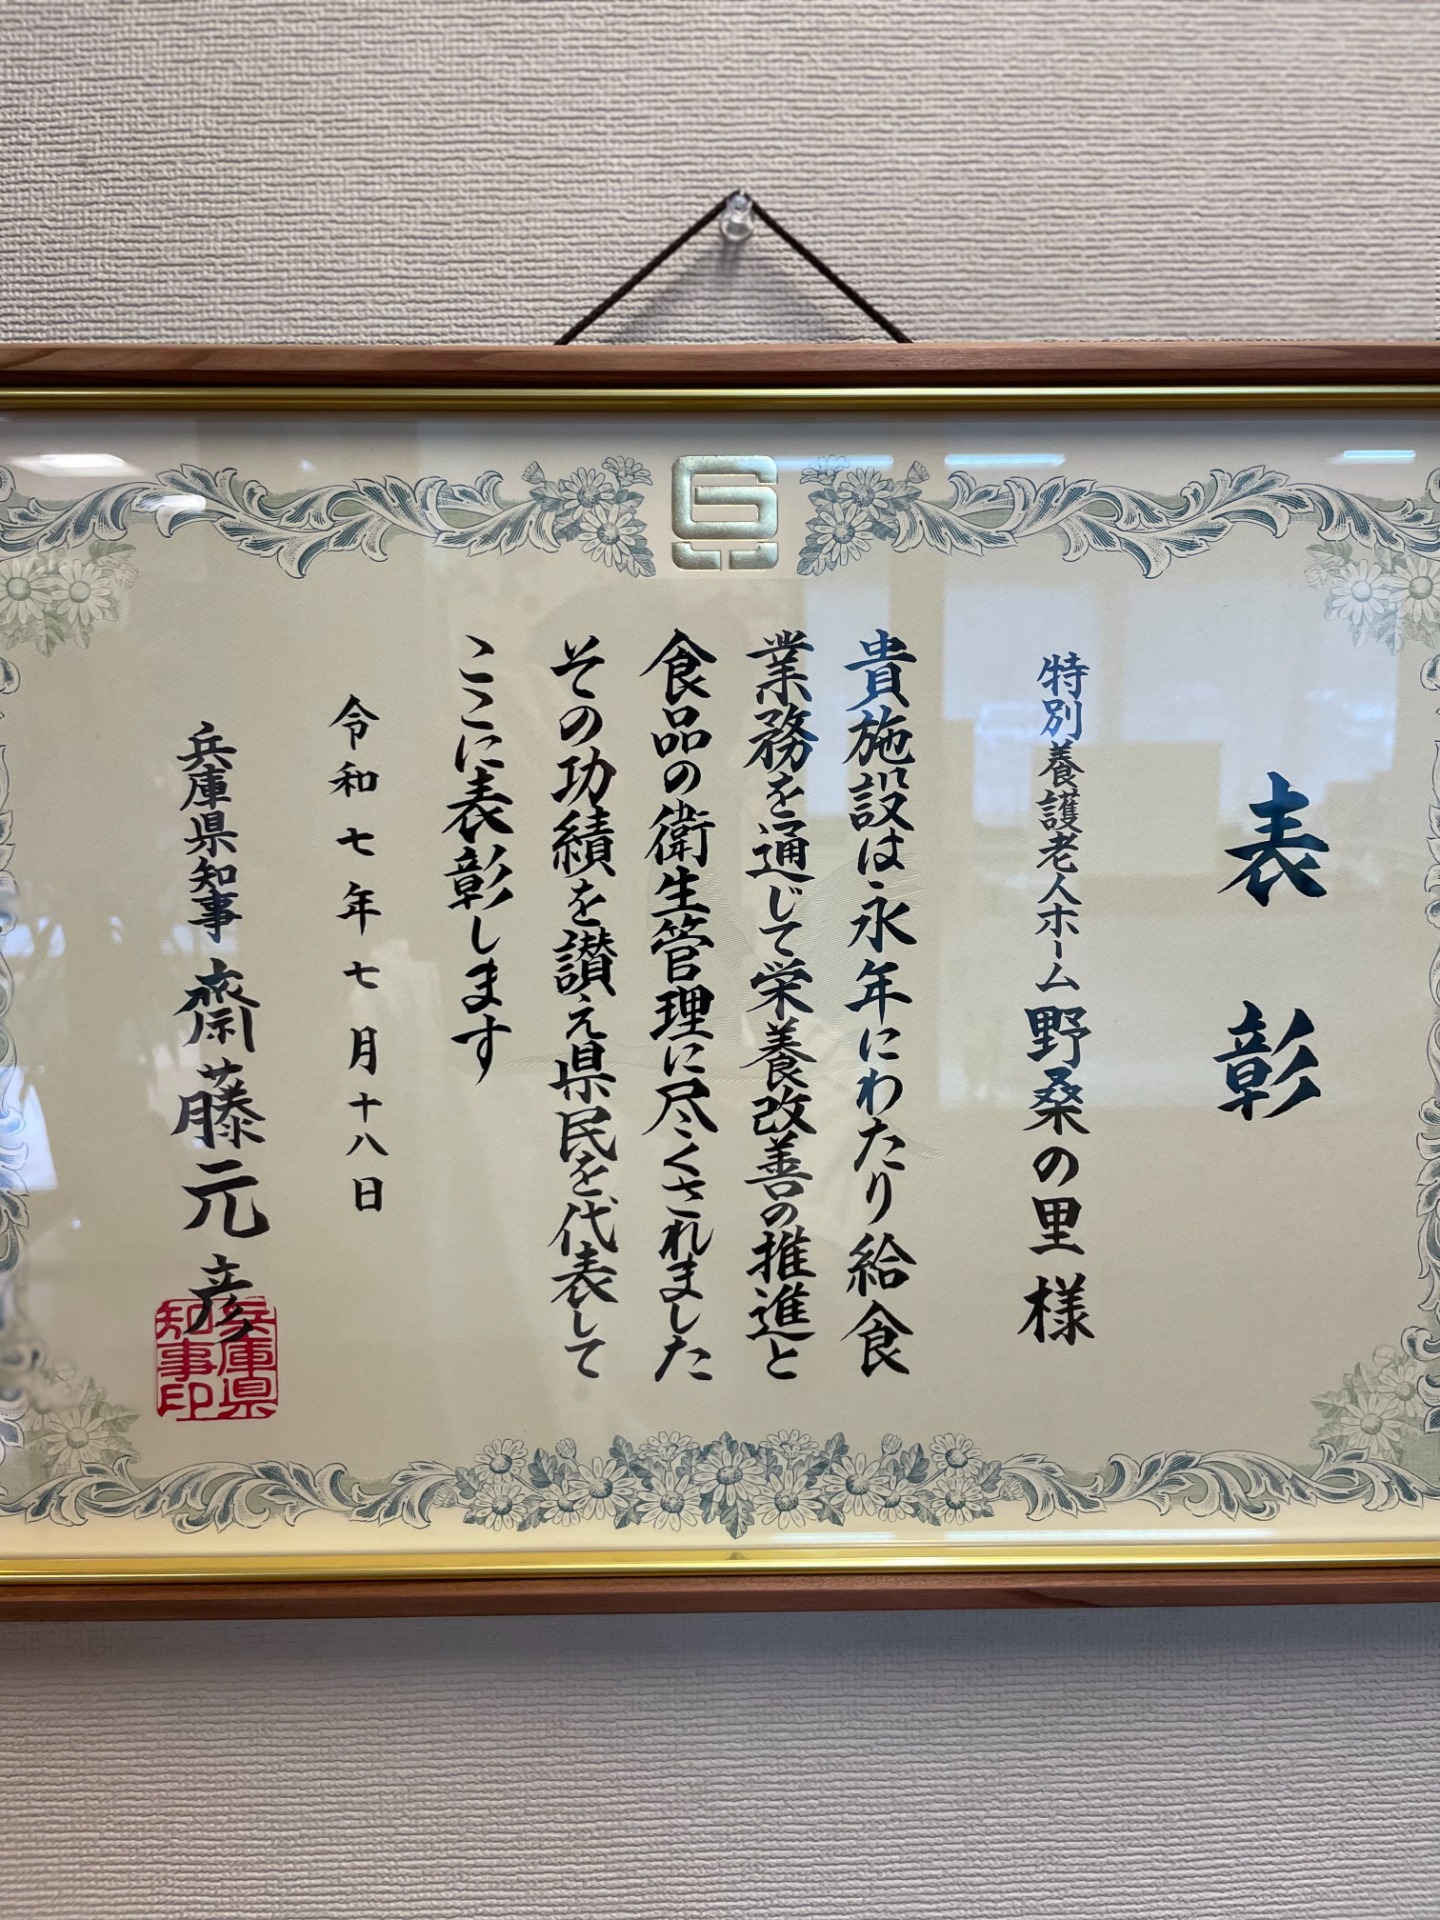 表彰
特別養護老人ホーム野桑の里様
貴施設は永年にわたり給食
業務を通じて栄養改善の推進と
食品の衛生管理に尽くされました
その功績を讃え県民を代表して
ここに表彰します
令和七年七月十八日
兵庫県知事 齋藤元彦
兵庫県
知事印